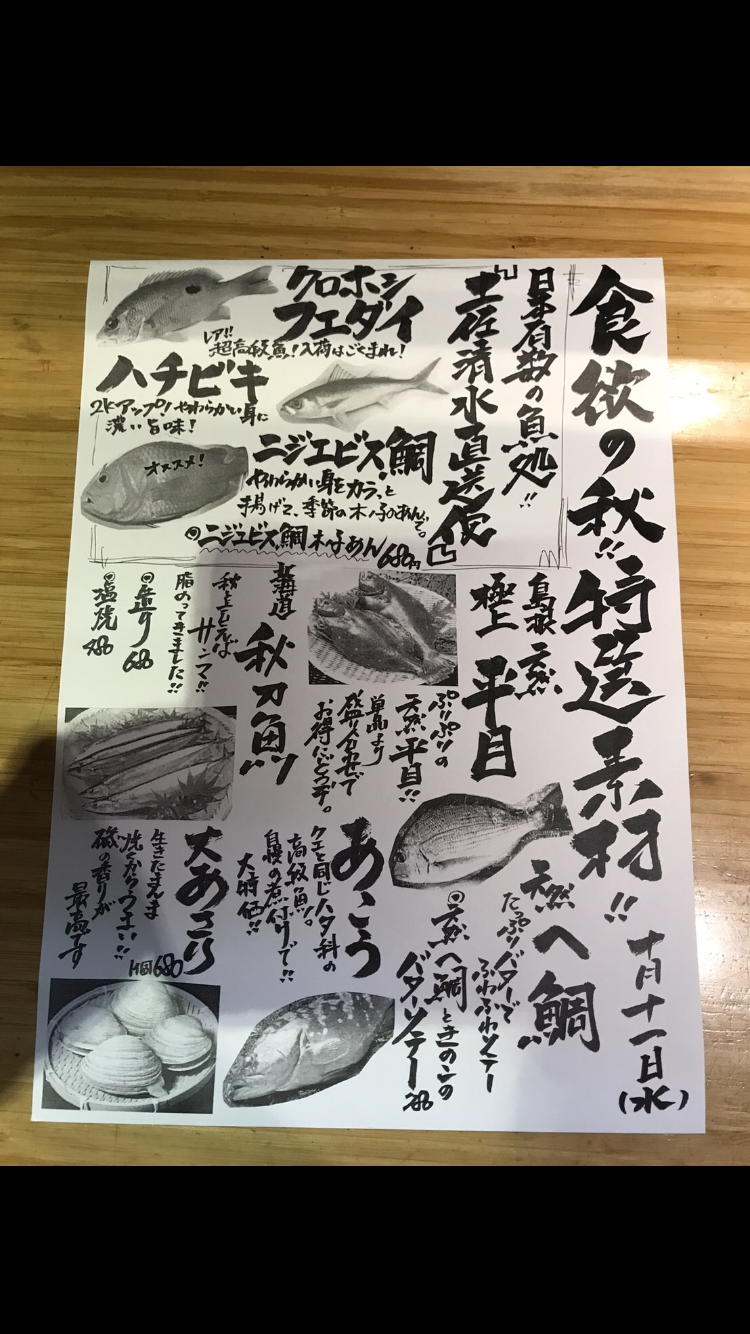 食欲の秋!!特選素材!!
十月十一日(水)
日本有数の魚処!!
「土佐清水直送便」
クロホシ
フエダイ
レア!!
超高級魚!入荷はごくまれ!
ハチビキ
2kアップ!やわらかい身に
濃い旨味!
オススメ!
ニジエビス鯛
やわらかい身をカラッと
手揚げて、季節の木ノ子のあんで。
◎ニジエビス鯛木ノ子あん 680円
島根 天然
極上 平目
ぷりぷりの
天然平目!!
単品より
盛り合わせで
お得にどうぞ。
北海道
秋刀魚
秋といえば
サンマ!!
脂のってきました!!
◎造り 680
◎塩焼
天然へ鯛
たっぷりバターで
ふわふわソテー
◎天然へ鯛ときのこの
バターソテー
あこう
クエと同じハタ科の
高級魚。
自慢の煮付けで!!
大特価!!
大あさり
生きたまんま
焼くからうまい!!
磯の香りが
最高です
1個680